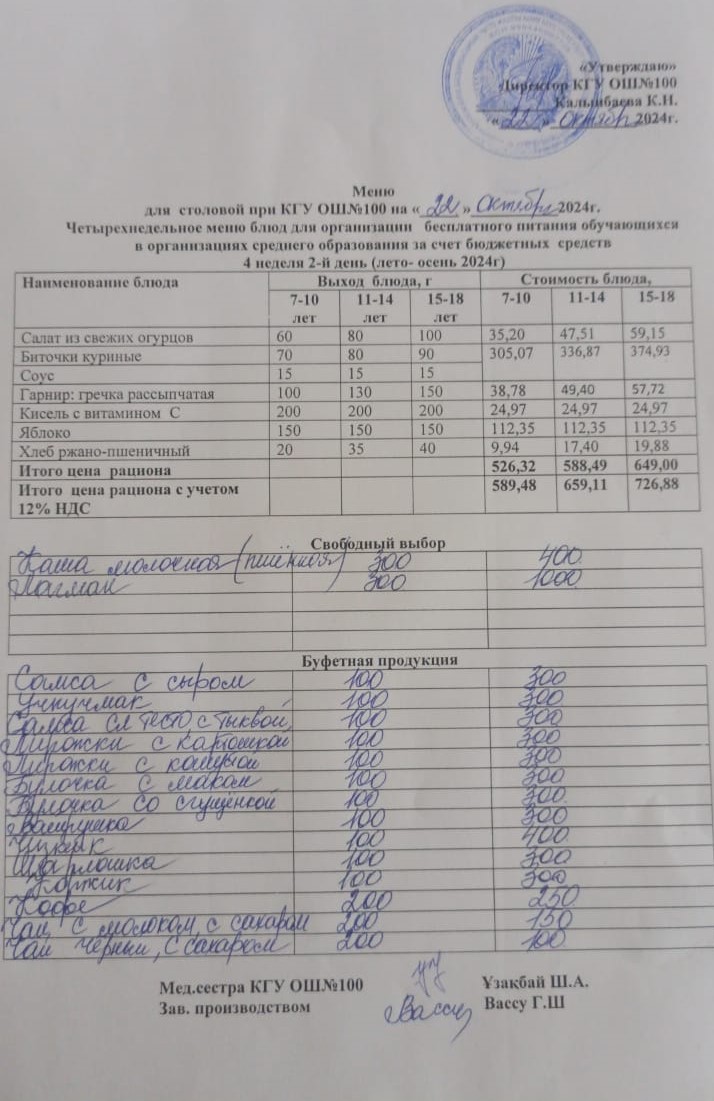 «Утверждаю»
Директор КГУ ОШ№100
Калынбаева К.Н.
«22» октября 2024г.
Меню
для столовой при КГУ ОШ№100 на «22» октября 2024г.
Четырехнедельное меню блюд для организации бесплатного питания обучающихся
в организациях среднего образования за счет бюджетных средств
4 неделя 2-й день (лето- осень 2024г)
Наименование блюда Выход блюда, г Стоимость блюда,
7-10 лет 11-14 лет 15-18 лет 7-10 11-14 15-18
Салат из свежих огурцов 60 80 100 35,20 47,51 59,15
Биточки куриные 70 80 90 305,07 336,87 374,93
Соус 15 15 15
Гарнир: гречка рассыпчатая 100 130 150 38,78 49,40 57,72
Кисель с витамином С 200 200 200 24,97 24,97 24,97
Яблоко 150 150 150 112,35 112,35 112,35
Хлеб ржано-пшеничный 20 35 40 9,94 17,40 19,88
Итого цена рациона 526,32 588,49 649,00
Итого цена рациона с учетом 589,48 659,11 726,88
12% НДС
Свободный выбор
Каша молочная (пшённая) 300 400
Лагман 300 1000
Буфетная продукция
Самса с сыром 100 300
Учпучмак 100 300
Самса сл тесто, с тыквой, 100 300
Пирожки с картошкой 100 300
Пирожки с капустой 100 300
Булочка с маком 100 300
Булочка со сгущёнкой 100 300
Ватрушка 100 300
100 400
Шарлошка 100 300
Коржик 100 300
Кофе 200 250
Чай с молоком, с сахаром 200 150
Чай черный, с сахаром 200 100
Мед.сестра КГУ ОШ№100 Ұзақбай Ш.А.
Зав. производством Вассу Вассу Г.Ш